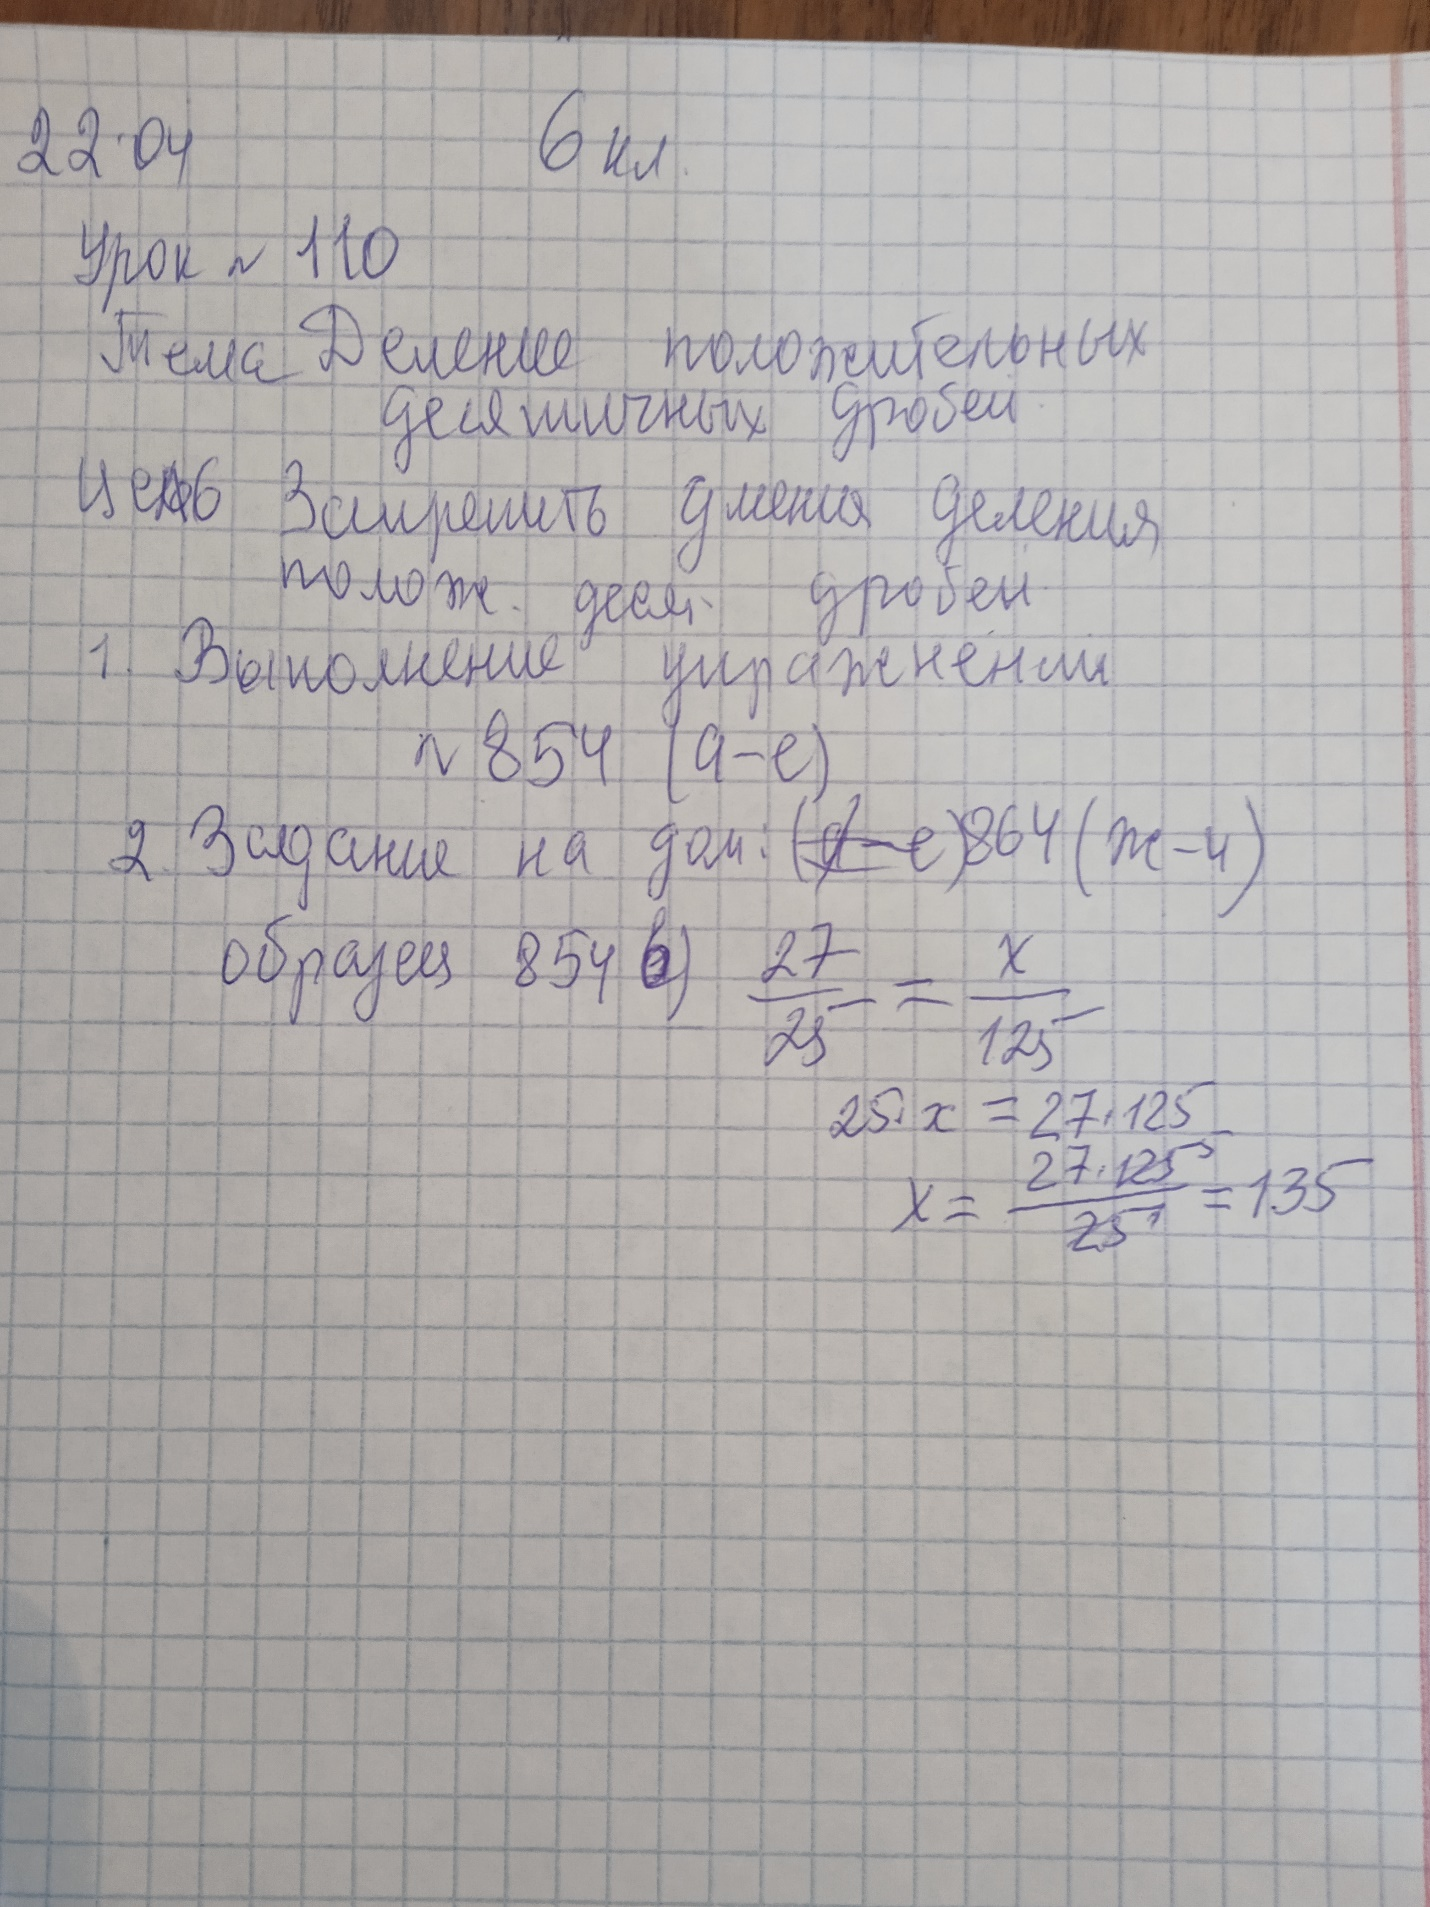 22.04 6 кл.
Урок № 110
Тема Деление положительных
десятичных дробей
Цель Закрепить умения деления
полож. деся. дробей
1. Выполнение упражнений
№ 854 (а-е)
2. Задание на дом: (д-е) 864 (ж-и)
образец 854 б) 27/25 = x/125
25·x = 27·125
x = 27·125⁵/25¹ = 135